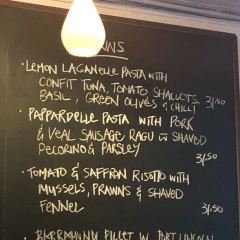 MAINS
• LEMON LAGANELLE PASTA WITH
CONFIT TUNA, TOMATO SHALLOTS
BASIL, GREEN OLIVES & CHILLI 31.50
• PAPPARDELLE PASTA WITH PORK
& VEAL SAUSAGE RAGU W SHAVED
PECORINO & PARSLEY
31.50
• TOMATO & SAFFRON RISOTTO WITH
MUSSELS, PRAWNS & SHAVED
FENNEL 31.50
• BARRAMUNDI FILLET W. PORT LINCOLN